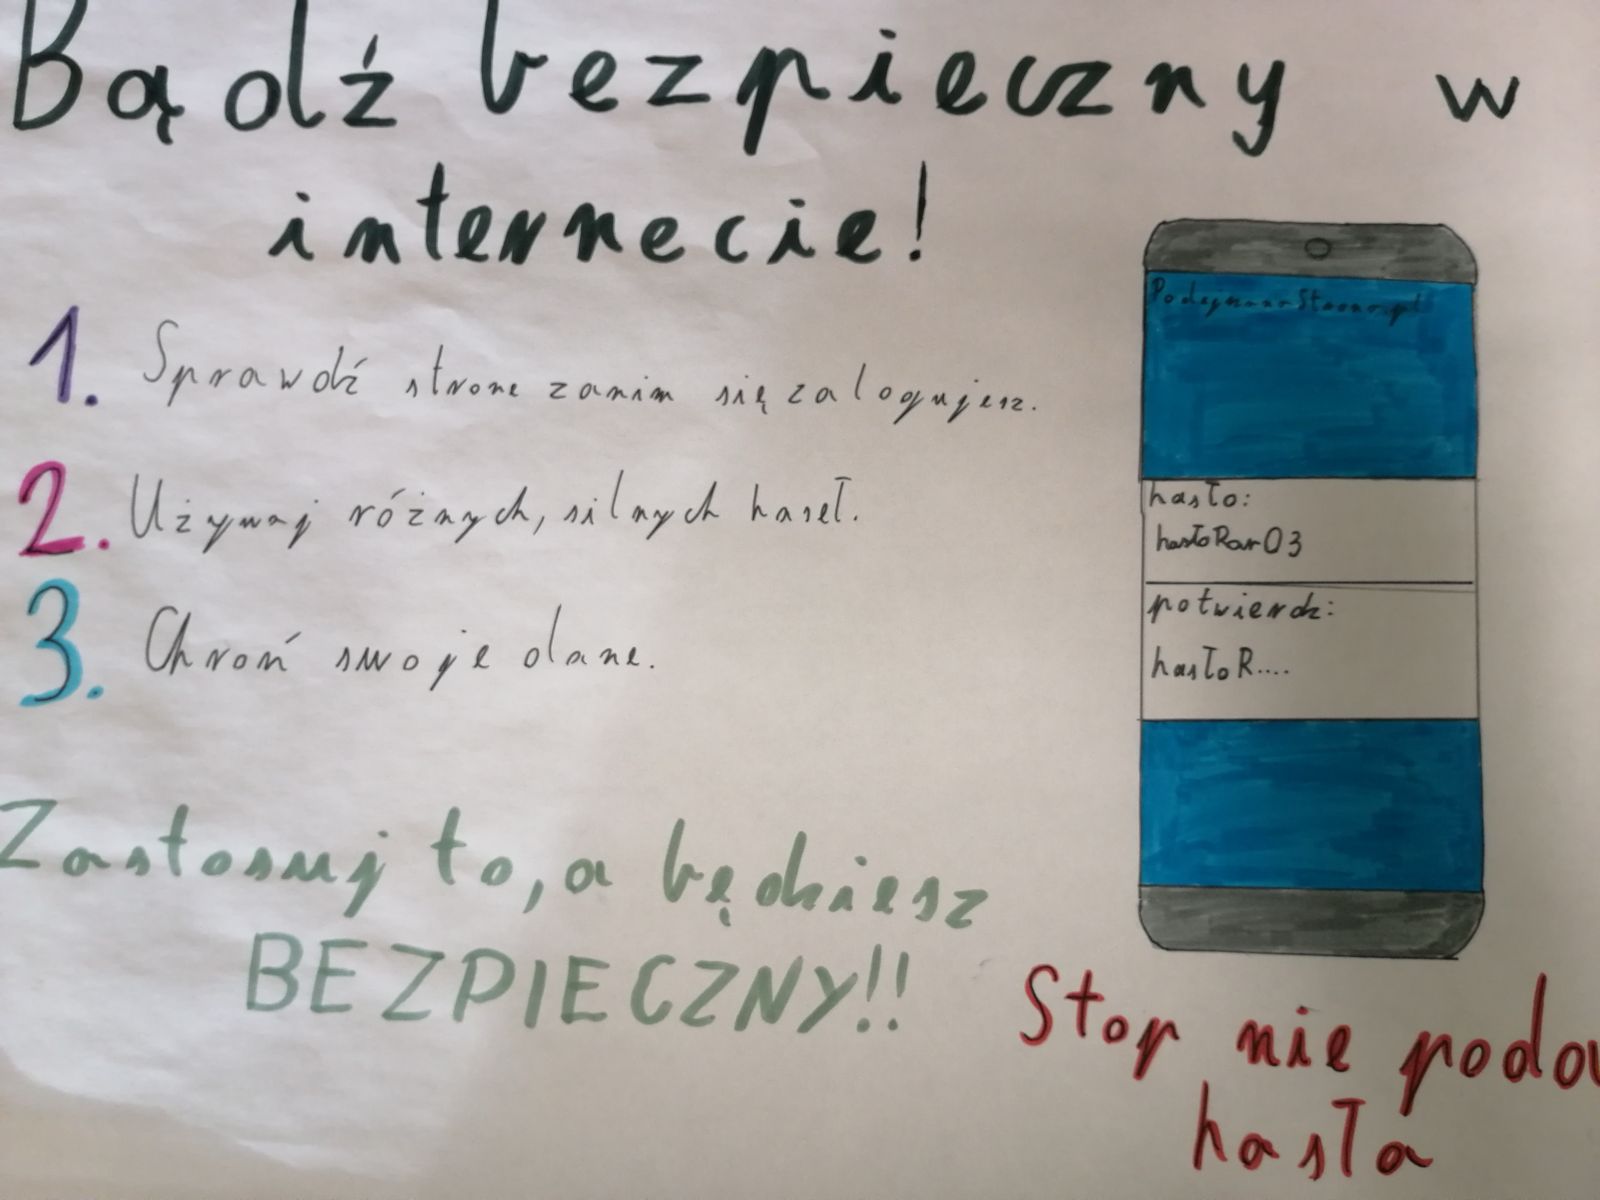 Bądź bezpieczny w
internecie!
1. Sprawdź strone zanim się zalogujesz.
2. Używaj różnych, silnych haseł.
3. Chroń swoje dane.
Zastosuj to, a będziesz
BEZPIECZNY!!
PodejrzanaStrona.pl
hasło:
hasłoRar03
potwierdź:
hasłoR....
Stop nie
hasła